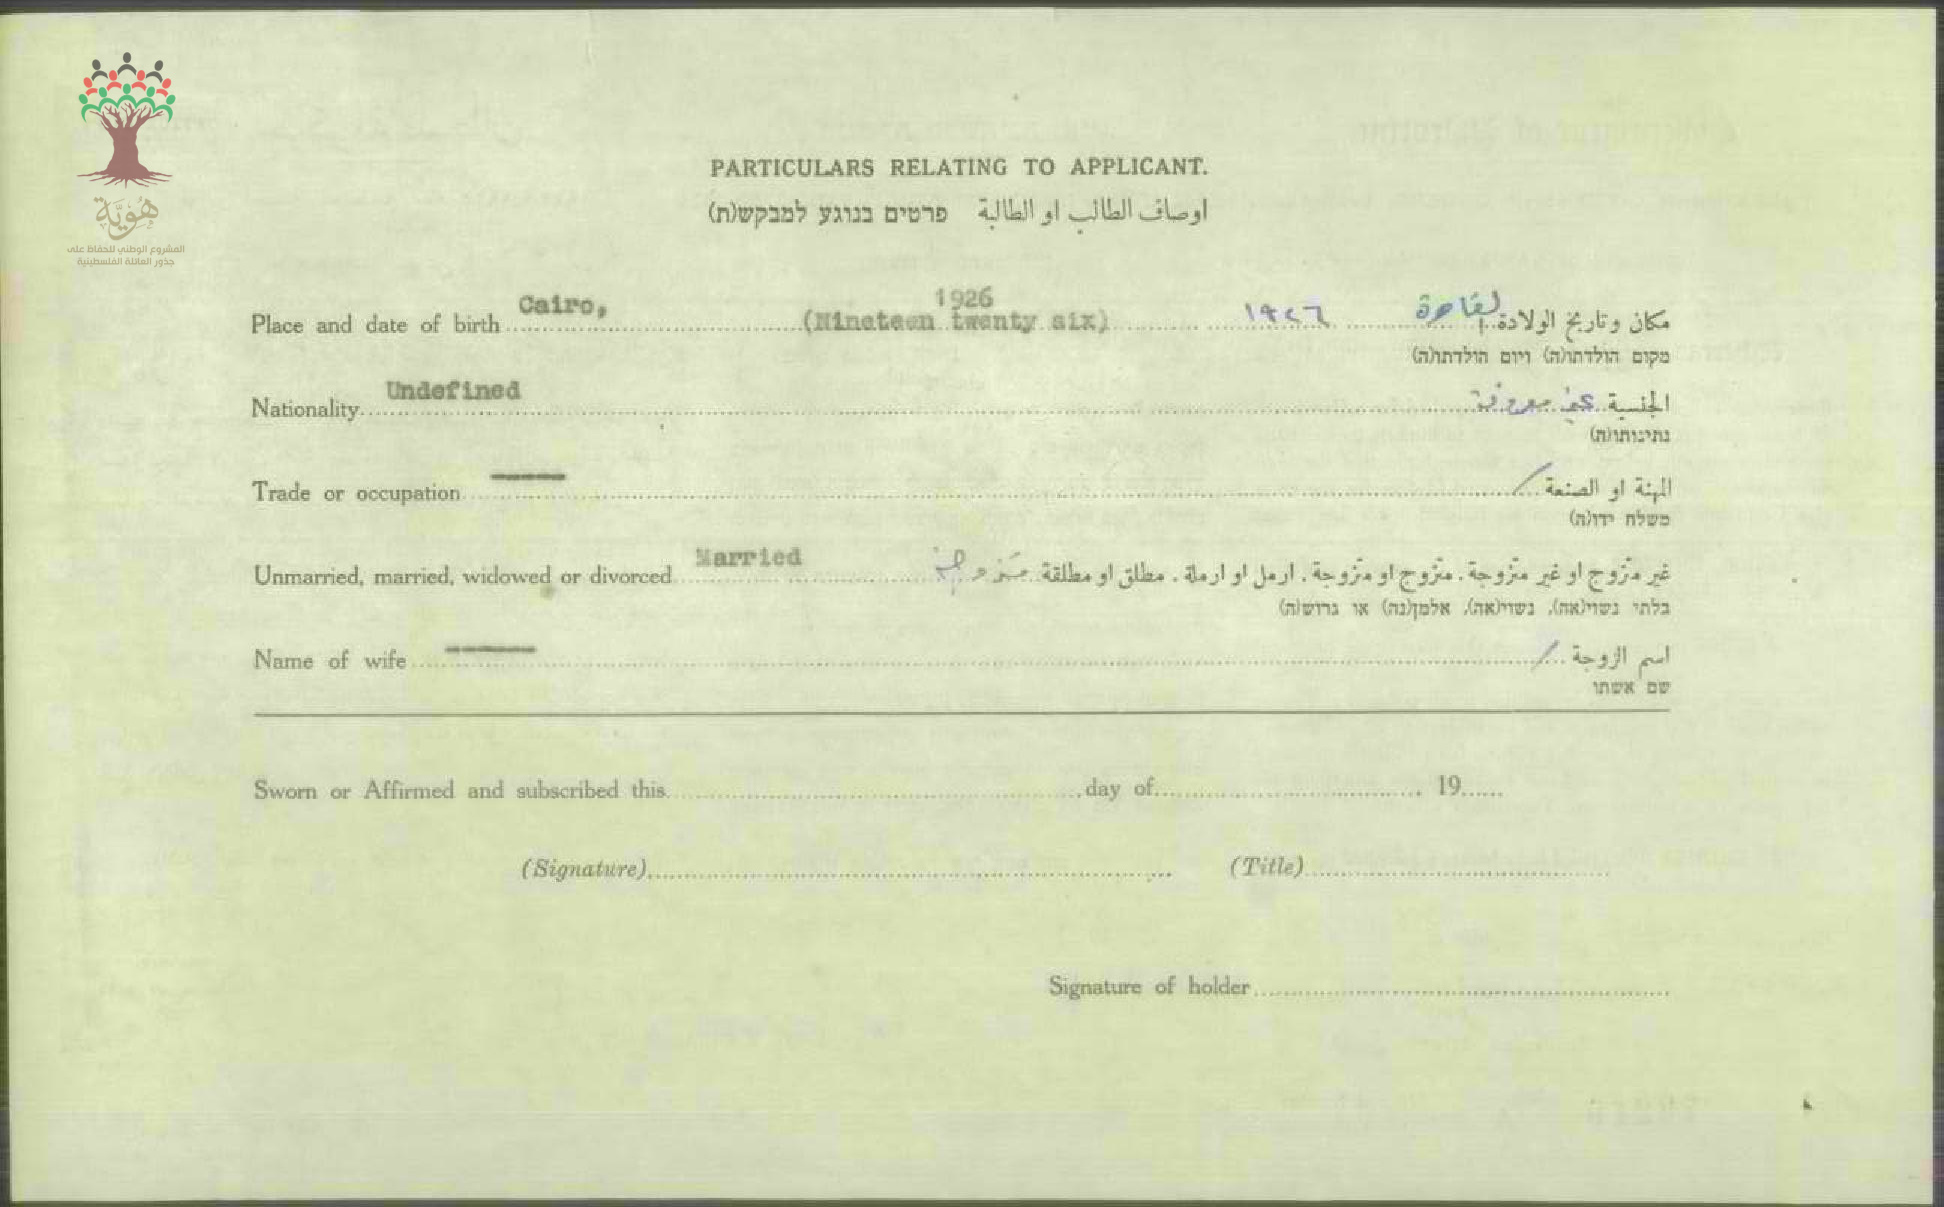 هُوِيَّة
المشروع الوطني للحفاظ على
جذور العائلة الفلسطينية
PARTICULARS RELATING TO APPLICANT.
اوصاف الطالب او الطالبة פרטים בנוגע למבקש(ת)
Place and date of birth Cairo, 1926 (Nineteen twenty six) ١٩٢٦ القاهرة مكان وتاريخ الولادة
מקום הולדתו(ה) ויום הולדתו(ה)
Nationality Undefined غير معروفة الجنسية
נתינותו(ה)
Trade or occupation — / المهنة او الصنعة
משלח ידו(ה)
Unmarried, married, widowed or divorced Married متزوجة غير متزوج او غير متزوجة. متزوج او متزوجة. ارمل او ارملة. مطلق او مطلقة
בלתי נשוי(אה), נשוי(אה), אלמן(נה) או גרוש(ה)
Name of wife — / اسم الزوجة
שם אשתו
Sworn or Affirmed and subscribed this day of 19
(Signature) (Title)
Signature of holder